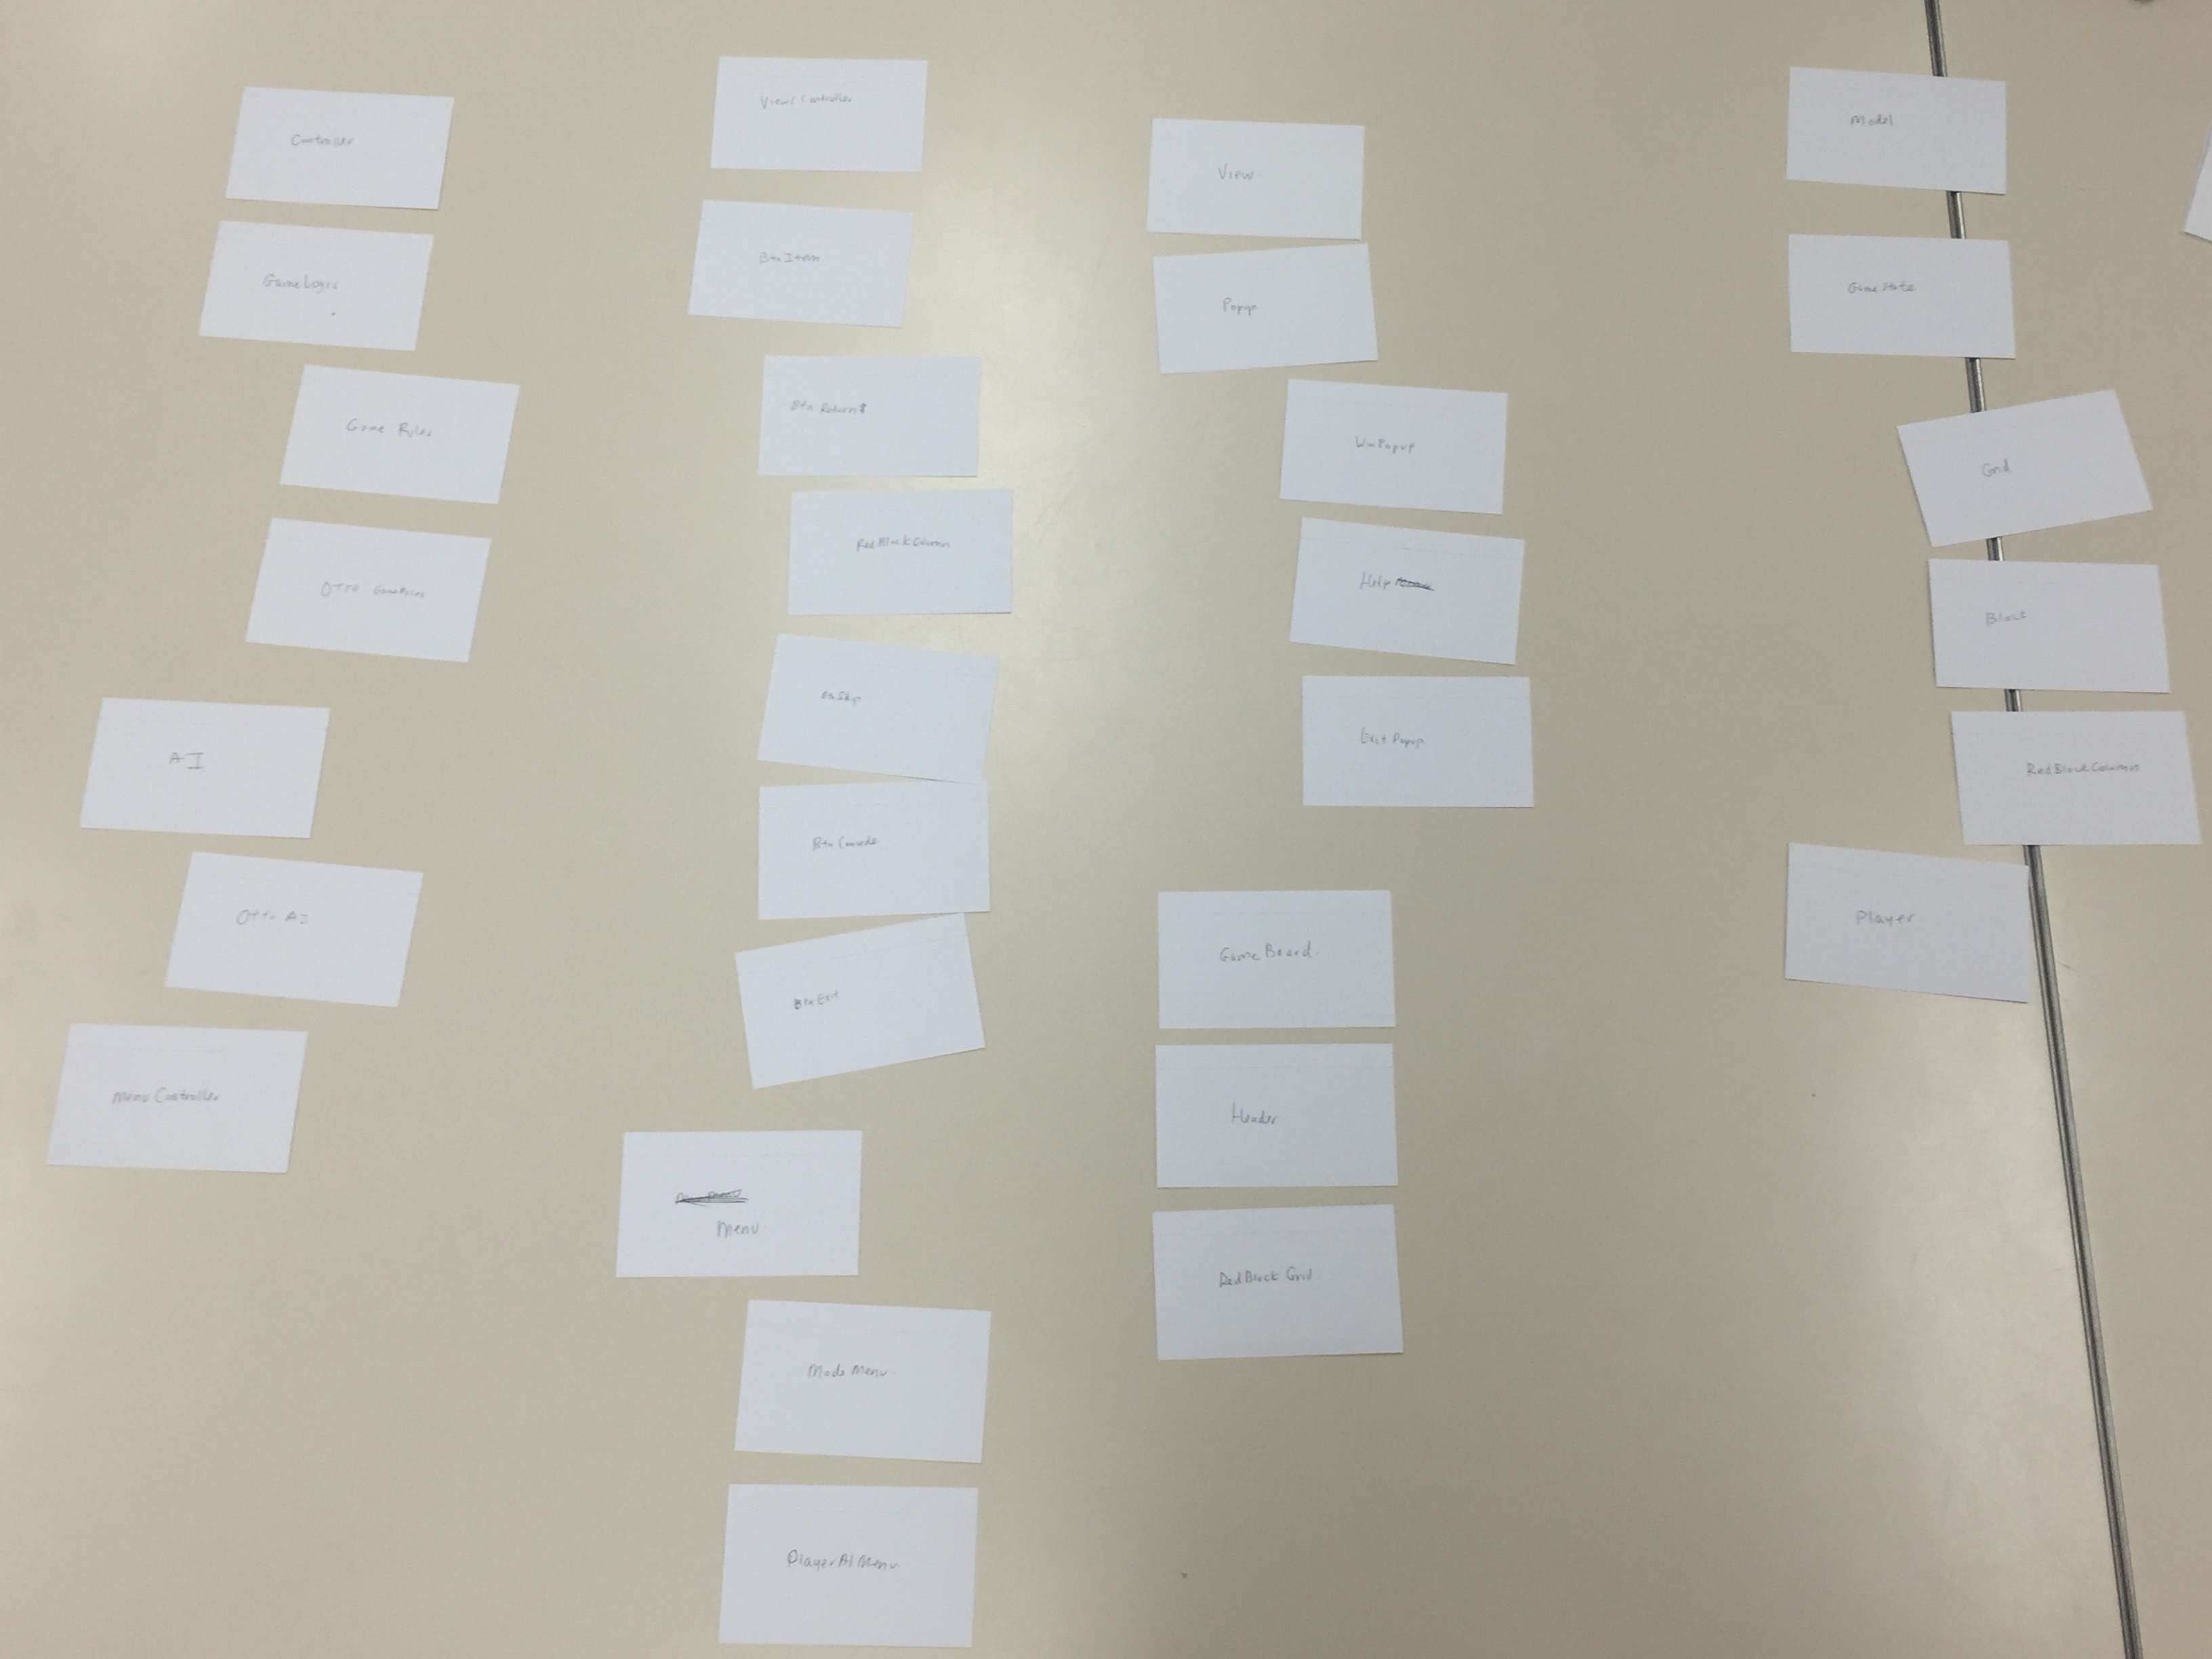 Controller
GameLogic
Game Rules
OTTO GameRules
AI
Otto AI
Menu Controller
View/Controller
BtnItem
Btn Return
RedBlockColumn
BtnSkip
Btn Concede
BtnExit
Menu
Mode Menu
PlayerAIMenu
View
Popup
WinPopup
Help
Exit Popup
GameBoard
Header
RedBlock Grid
Model
GameState
Grid
Block
RedBlockColumn
Player